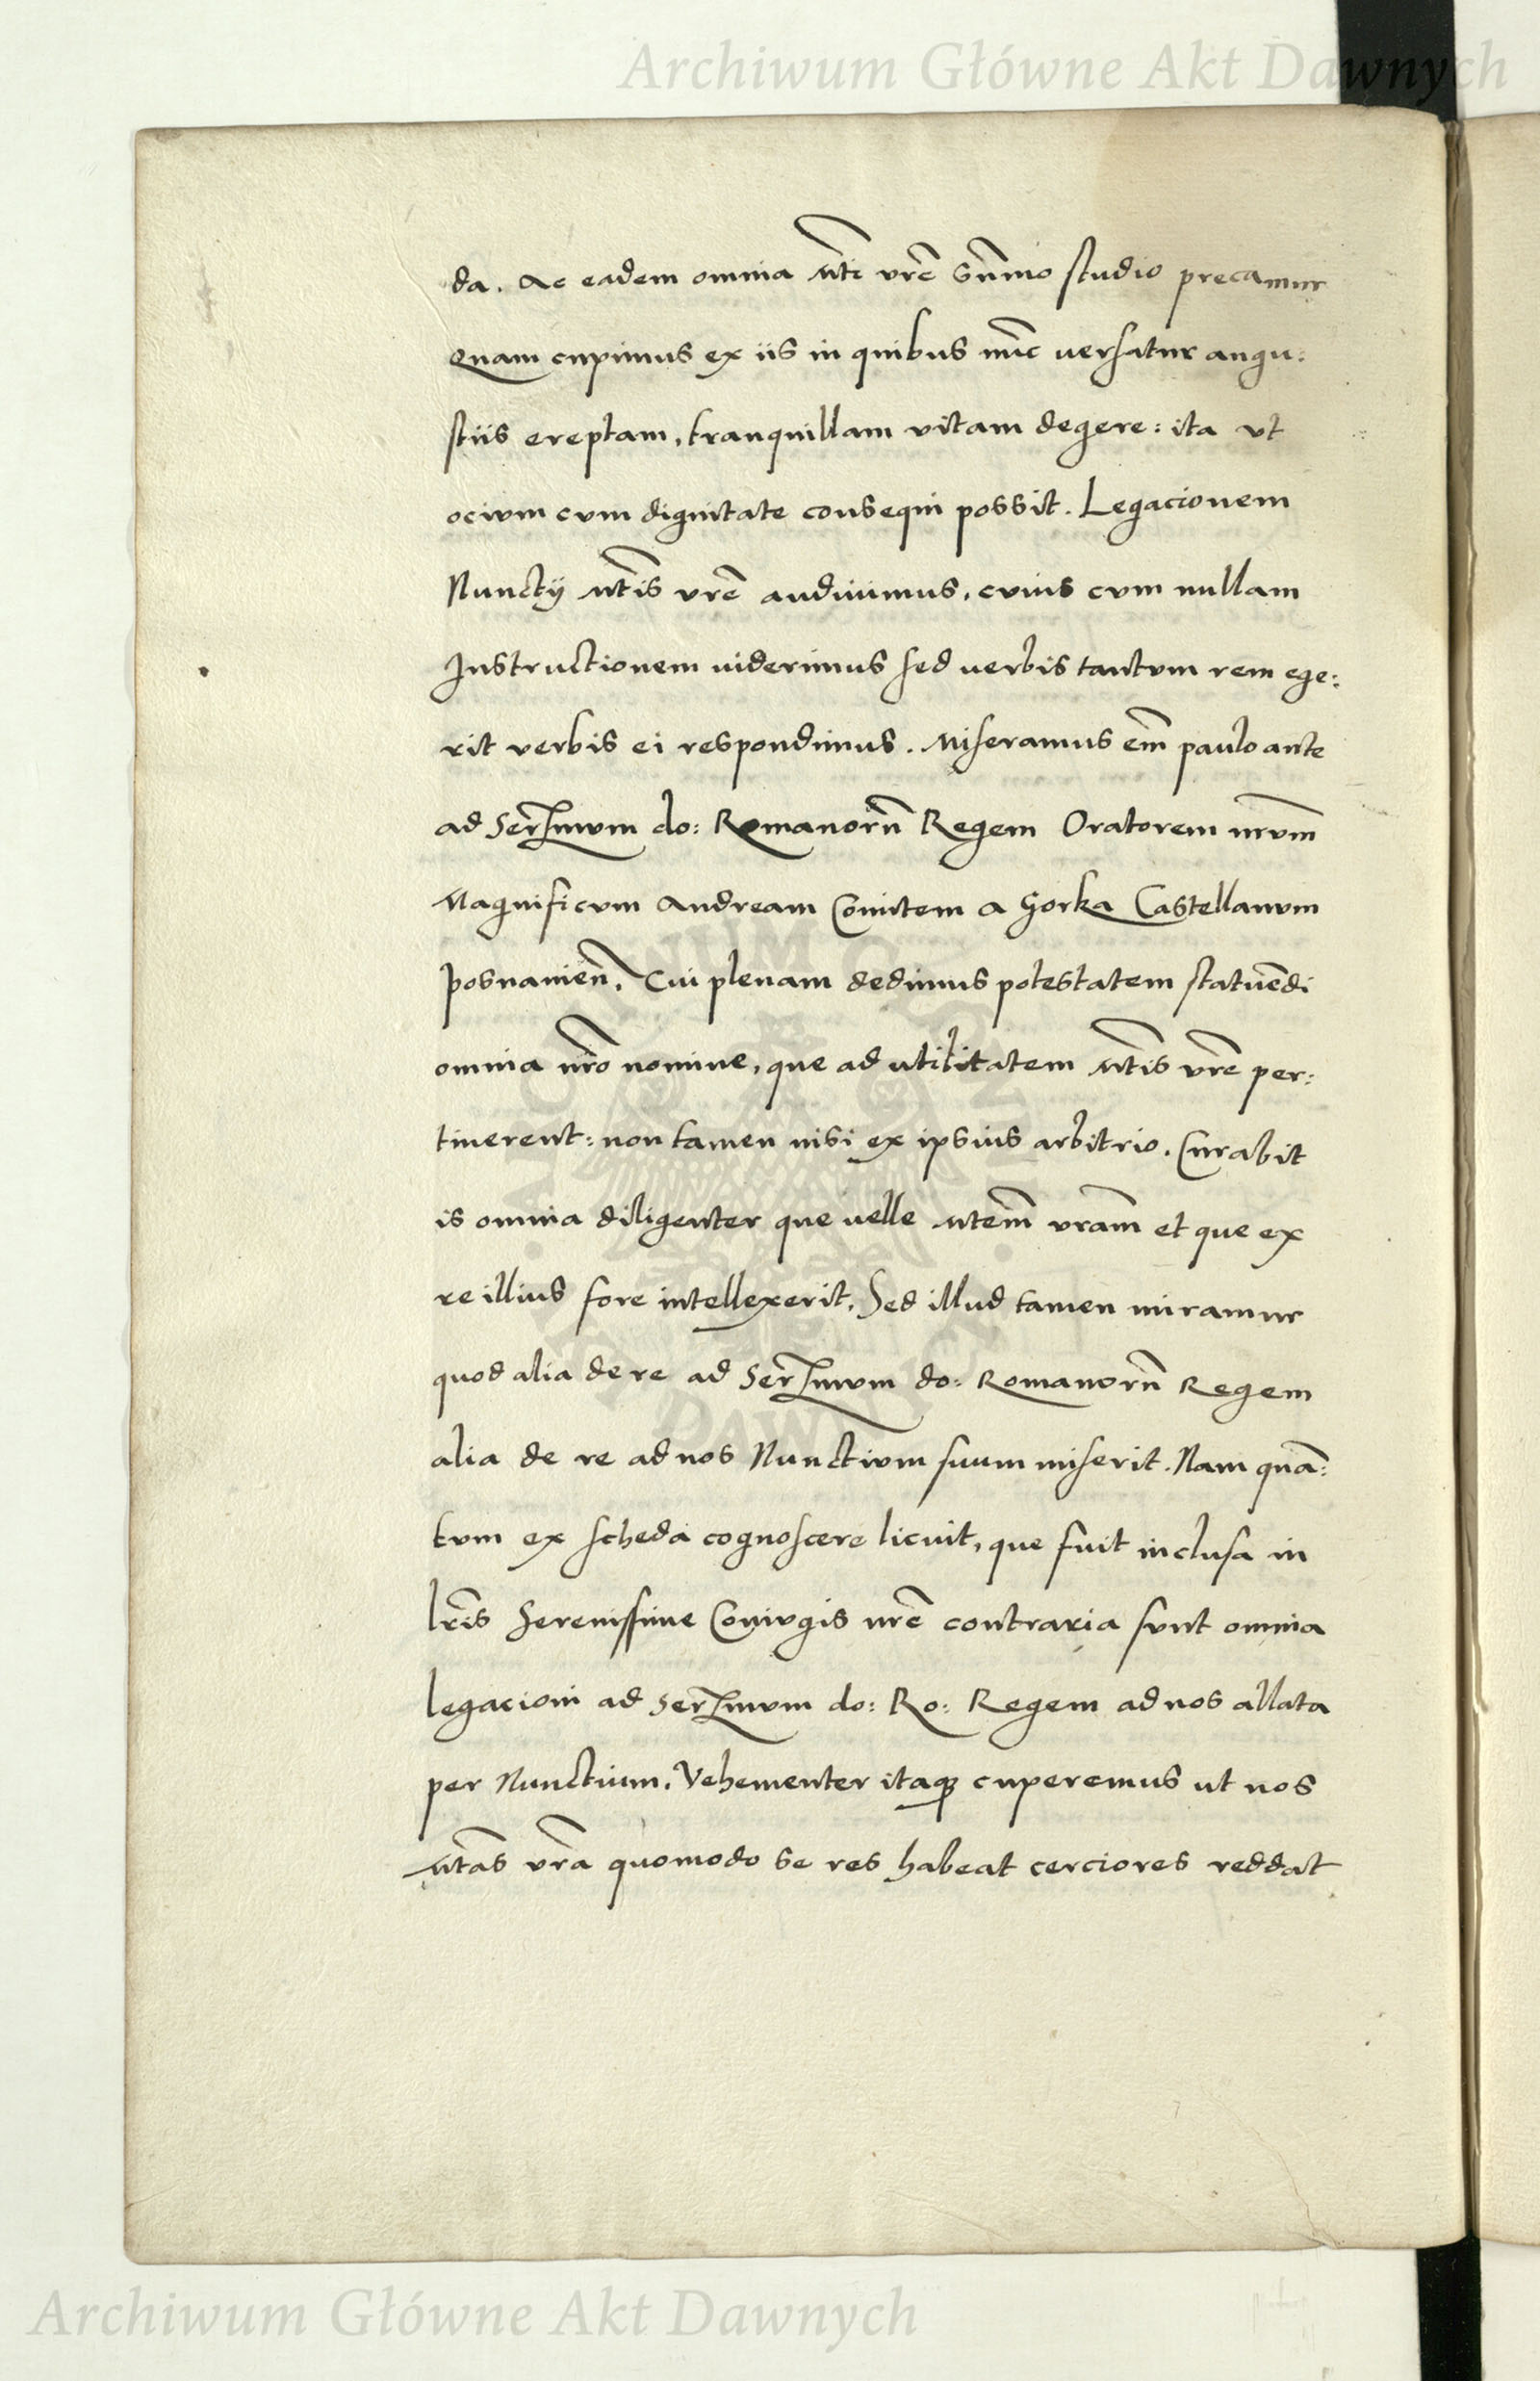 Archiwum Główne Akt Dawnych
da. Ac eadem omnia Mti vrẽ sũmo studio precamur
Quam cupimus ex iis in quibus nũc uersatur angu:
stiis ereptam, tranquillam vitam degere: ita vt
ocium cum dignitate consequi possit. Legacionem
Nunctij Mtis vrẽ audiuimus, cuius cum nullam
Instructionem uiderimus sed verbis tantum rem ege:
rit verbis ei respondimus. Miseramus em̃ paulo ante
ad Serᷤmum do: Romanorũ Regem Oratorem nr̃um
Magnificum Andream Comitem a Gorka Castellanum
Posnanieñ. Cui plenam dedimus potestatem statuẽdi
omnia nr̃o nomine, que ad utilitatem Mtis vrẽ per:
tinerent: non tamen nisi ex ipsius arbitrio. Curabit
is omnia diligenter que uelle Mtem̃ vram̃ et que ex
re illius fore intellexerit. Sed illud tamen miramur
quod alia de re ad Serᷤmum do: Romanorũ Regem
alia de re ad nos Nunctium suum miserit. Nam quã:
tum ex scheda cognoscere licuit, que fuit inclusa in
lr̃is Serenissime Coniugis nrẽ contraria sunt omnia
legacioni ad Serᷤmum do: Ro: Regem ad nos allata
per Nunctium. Vehementer itaqꝫ cuperemus ut nos
Mtas vrã quomodo se res habeat cerciores reddat
Archiwum Główne Akt Dawnych